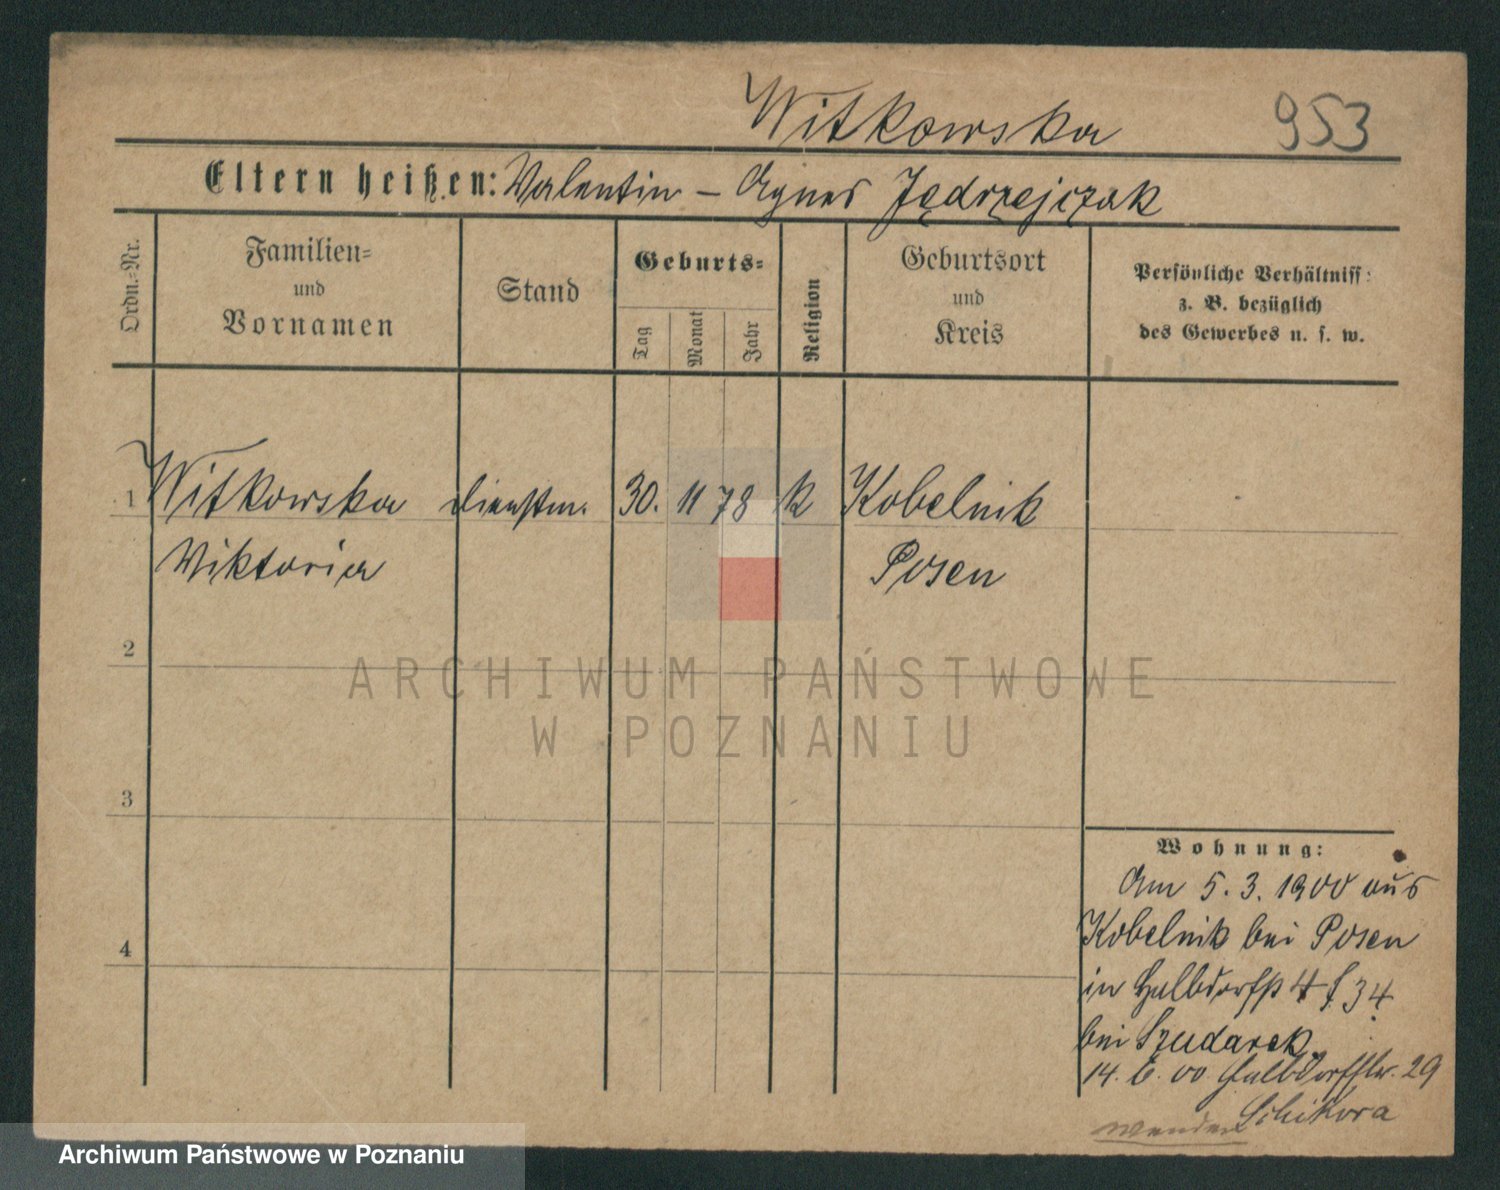 Witkowska 953
Eltern heißen: Valentin – Agnes Jędrzejczak
Ordn.=Nr.
Familien=
und
Vornamen
Stand
Geburts=
Tag
Monat
Jahr
Religion
Geburtsort
und
Kreis
Persönliche Verhältniss:
z. B. bezüglich
des Gewerbes u. s. w.
1 Witkowska Dienstm. 30. 11 78 k Kobelnik
Wiktoria Posen
2
3
4
ARCHIWUM PAŃSTWOWE
W POZNANIU
Wohnung:
Am 5. 3. 1900 aus
Kobelnik bei Posen
in Halbdorfst 34
bei Szudarek
14. 6. 00. Halbdorfstr. 29
Schikora
wenden
Archiwum Państwowe w Poznaniu